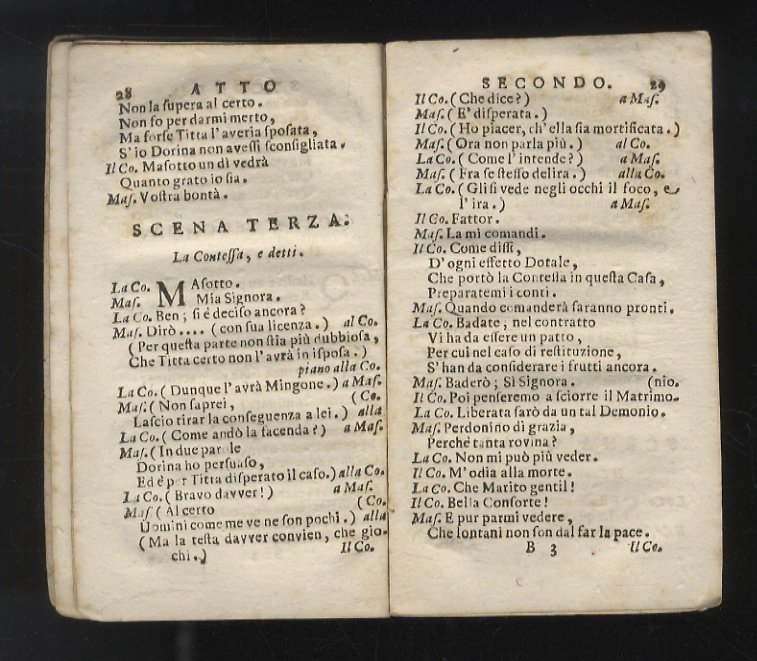 28 ATTO
Non la supera al certo.
Non so per darmi merto,
Ma forse Titta l'averia sposata,
S'io Dorina non avessi sconsigliata.
Il Co. Masotto un dì vedrà
Quanto grato io sia.
Mas. Vostra bontà.
SCENA TERZA.
La Contessa, e detti.
La Co. MAsotto.
Mas. Mia Signora.
La Co. Ben; si è deciso ancora?
Mas. Dirò.... (con sua licenza.) al Co.
(Per questa parte non stia più dubbiosa,
Che Titta certo non l'avrà in isposa.)
piano alla Co.
La Co. (Dunque l'avrà Mingone.) a Mas.
Mas. (Non saprei, (Co.
Lascio tirar la conseguenza a lei.) alla
La Co. (Come andò la facenda?) a Mas.
Mas. (In due parole
Dorina ho persuaso,
Ed è per Titta disperato il caso.) alla Co.
La Co. (Bravo davver!) a Mas.
Mas. (Al certo (Co.
Uomini come me ve ne son pochi.) alla
(Ma la testa davver convien, che gio-
chi.) Il Co.
SECONDO. 29
Il Co. (Che dice?) a Mas.
Mas. (E' disperata.)
Il Co. (Ho piacer, ch'ella sia mortificata.)
Mas. (Ora non parla più.) al Co.
La Co. (Come l'intende?) a Mas.
Mas. (Fra se stesso delira.) alla Co.
La Co. (Gli si vede negli occhi il foco, e
l'ira.) a Mas.
Il Co. Fattor.
Mas. La mi comandi.
Il Co. Come dissi,
D'ogni effetto Dotale,
Che portò la Contessa in questa Casa,
Preparatemi i conti.
Mas. Quando comanderà saranno pronti.
La Co. Badate; nel contratto
Vi ha da essere un patto,
Per cui nel caso di restituzione,
S'han da considerare i frutti ancora.
Mas. Baderò; Sì Signora. (nio.
Il Co. Poi penseremo a sciorre il Matrimo-
La Co. Liberata sarò da un tal Demonio.
Mas. Perdonino di grazia,
Perchè tanta rovina?
La Co. Non mi può più veder.
Il Co. M'odia alla morte.
La Co. Che Marito gentil!
Il Co. Bella Consorte!
Mas. E pur parmi vedere,
Che lontani non son dal far la pace.
B 3 Il Co.